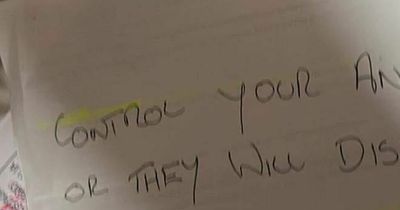 CONTROL YOUR AN
OR THEY WILL DIS